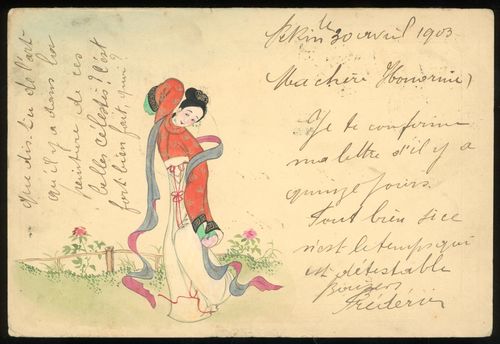 Pékin le 30 avril 1903
Ma chère Honorine,
Je te confirme
ma lettre d'il y a
quinze jours.
Tout bien si ce
n'est le temps qui
est détestable
Baisers
Frédéric
Que dis-tu de l'art
qu'il y a dans la
peinture de ces
belles célestes? C'est
fort bien fait, quoi?